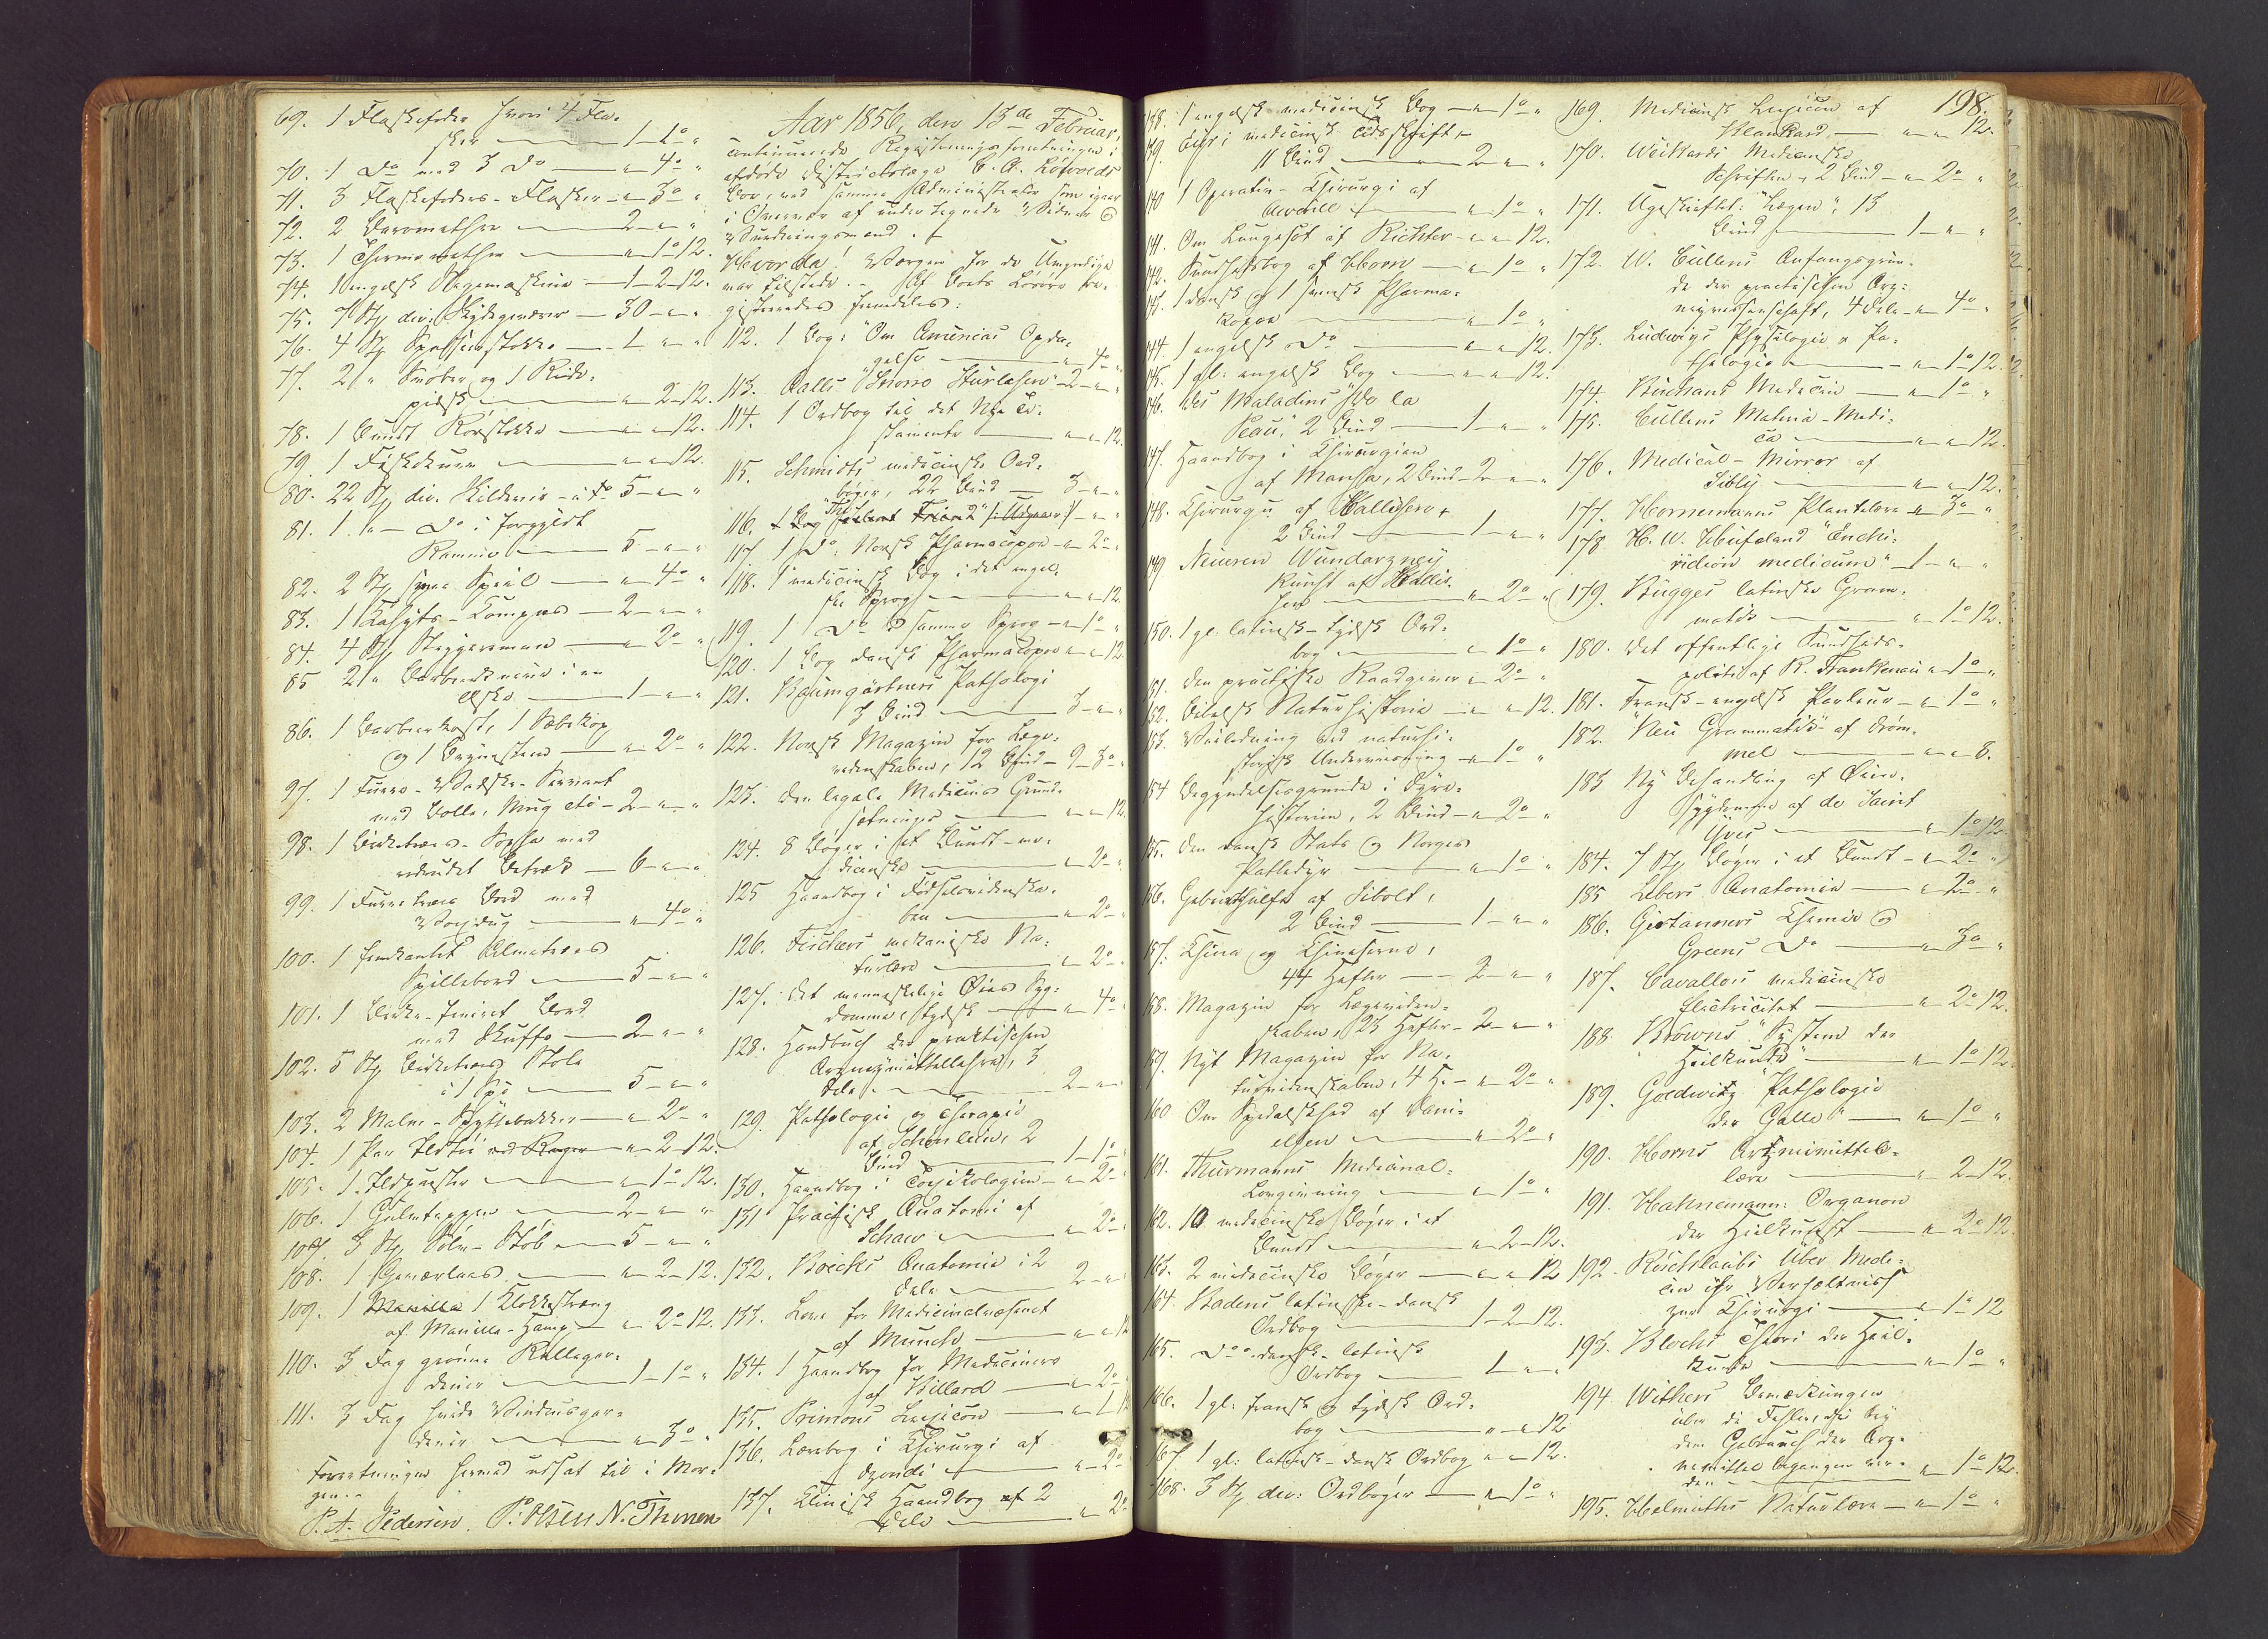 69. 1 Flaskefoder hvori 4 Fla-
sker — 1 - 1 o "
70. 1 Do med 3 Do — " 4 o "
71. 3 Flaskefoders-Flasker — " 3 o "
72. 2 Baromether — 2 - " - "
73. 1 Thermomether — " 1 o 12.
74. 1 engelsk Regnemaskine — 1 - 2 - 12.
75. 7 Stk div: Skydegeværer — 30 - " - "
76. 4 Stk Spadserstokke — 1 - " - "
77. 2 " Snober og 1 Ride-
pidsk — " 2 - 12.
78. 1 Bundt Rørstokke — " - " 12.
79. 1 Fiskekurv — " - " 12.
80. 22 Stk div. Skilderier — 5 - " - "
81. 1 " — Do i forgyldt
Ramme — 5 - " - "
82. 2 Stk smaa Speil — " 4 o "
83. 1 Kahyts-Kompas — 2 - " - "
84. 4 Stk — " 2 o "
85 2 " Barbeerknive i en
Æske — 1 - " - "
86. 1 Barbeerkost, 1 Sæbekop
og 1 Brynesteen — " 2 o "
97. 1 Furru-Vadske-Servant
med Bolle, Mug etc — 2 - " - "
98. 1 Birketræes-Sopha med
Betræk — 6 - " - "
99. 1 Furretræes Bord med
Voxdug — " 4 o "
100. 1 Almetræes
Spillebord — 5 - " - "
101. 1 Birke-fineret Bord
med Skuffe — 2 - " - "
102. 5 Stk Birketræes Stole
— 5 - " - "
103. 2 Malm-Spyttebakker — " 2 o "
104. 1 Par Ildtøi — " 2 - 12.
105. 1 Ildpuster — " 1 o 12.
106. 1 Gulvteppe — 2 - " - "
107. 3 Stk — 5 - " - "
108. 1 Geværlaas — " 2 - 12.
109. 1 Manilla 1 Klokkestræng
af Manilla-Hamp — " 2 o 12.
110. 3 Fag grønne Rullegar-
diner — 1 - 1 o "
111. 3 Fag hvide Vinduesgar-
diner — " 3 o "
Forretningen hermed udsat til i Mor-
gen. -
P. A. Pedersen. P: Olsen N. Thinen
Aar 1856, den 13de Februar,
continuerede Registreringsforretningen i
afdøde Districtslæge C. A. Lofvoeds
Boe, ved samme Administrator som igaar
i Overvær af undertegnede Vidner og
Vurderingsmænd. -
Hvorda! Værgen for de Umyndige
var tilstede. - Af Boets Løsøre re-
gistreredes fremdeles:
112. 1 Bog: "Om Amerikas Opda-
gelse — " 4 o "
113. Dalls "Snorro Sturlesen" 2 - " - "
114. 1 Ordbog til det Nye Te-
stamente — " - " 12.
115. Schmidts medicinske Aar-
bøger, 22 Bind — 3 - " - "
116.
117. 1 Do, Norsk Pharmacopoe — " 2 o "
118. 1 medicinsk Bog i det engel-
ske Sprog — " - " 12
119. 1 Do i samme Sprog — " 1 o "
120. 1 Bog dansk Pharmacopoe — " - " 12
121. Baumgärtners Pathologi
3 Bind — 3 - " - "
122. Norsk Magazin for Læge-
videnskaben, 12 Bind — 9 - 3 o "
123. Den legale Medicins Grund-
sætninger — " - " 12
124. 8 Bøger i et Bundt - me-
dicinske — " 2 o "
125 Haandbog i Fødselsvidenska-
ben — " 2 o "
126. Fischers mekaniske Na-
turlære — " 2 o "
127. Det menneskelige Øies Syg-
domme, tydsk — " 4 o "
128. Handbuch der praktischen
Arzneimittellehre, 3
Dele. — 2 - " -
129. Pathologie og Therapie
af Schönlein, 2
Bind — 1 - 1 o "
130. Haandbog i Toxikologien — " 2 o "
131 Practisk Anatomi af
Schaw — " 2 o "
132. Boecks Anatomie i 2
Dele — 2 - "
133. Love for Medicinalvæsenet
af Munch — " - " 12
134. 1 Haandbog for Mediciners
af Billard — " 2 o
135. Primons Lexicon —
136. Lærebog i Chirurgi af
Dzondi — " 2 o
137. Clinisk Haandbog af 2
Dele — " 2 o
198.
138. 1 engelsk medicinsk Bog — " 1 o "
139. Eyrs medicinsk Tidsskrift,
11 Bind — 2 - " - "
140 1 Operativ-Chirurgi af
Averill — " 1 o "
141. Om Lungesot af Richter — " - " 12.
142. Sundhedsbog af Horn — " 1 o "
143. 1 dansk og 1 svensk Pharma-
kopoe — " 1 o "
144. 1 engelsk Do — " - " 12.
145. 1 gl: engelsk Bog — " - " 12.
146. "Des Maladies De la
Peau," 2 Bind — 1 - " - "
147. Haandbog i Chirurgien
af Mansa, 2 Bind — 2 - " - "
148. Chirurgi af Callisen,
2 Bind — 1 - " - "
149 Neueren Wundarzney
Kunst af
— " 2 o "
150. 1 gl. latinsk-tydsk Ord-
bog — " 1 o "
151. Den practiske Raadgiver — " 2 o "
152. Bibelsk Naturhistorie — " - " 12.
153. Veiledning ved naturhi-
storisk Underviisning — " 1 o "
154 Begyndelsesgrunde i Dyre-
historien, 2 Bind — " 2 o "
155. Den dansk Stats og Norges
Pattedyr — " 1 o "
156. Geburtshülfe af Sibold,
2 Bind — 1 - " - "
157. China og Chineserne,
44 Hefter — 2 - " - "
158. Magazin for Lægeviden-
skaben, 23 Hefter — 2 - " - "
159. Nyt Magazin for Na-
turvidenskaben, 4 H. — " 2 o "
160 Om Spedalskhed af Dani-
elsen — " 2 o "
161. Thurmanns Medicinal-
Lovgivning — " 1 o "
162. 10 medicinske Bøger i et
Bundt — " 2 - 12.
163. 2 medicinske Bøger — " - " 12
164. Badens latinske-dansk
Ordbog — 1 - 2 - 12.
165. Do dansk-latinsk
Ordbog — 1 - " - "
166. 1 gl: fransk og tydsk Ord-
bog — " - " 12
167. 1 gl: latinsk-dansk Ordbog " - " 12.
168. 3 Stk div: Ordbøger — " 1 o "
169. Medicinsk Lexicon af
Blankard, — " - " 12.
170. Weikards Medicinske
Schriften, 2 Bind — " 2 o "
171. Ugeskriftet: "Lægen", 13
Bind — 1 - " - "
172. W. Cullens Anfangsgrün-
de der practischen Arz-
neywissenschaft, 4 Dele — " 4 o "
173. Ludwigs Physiologie & Pa-
thologie — " 1 o 12.
174. Buchans Medicin — " 1 o "
175. Cullens Materia-Medi-
ca — " - " 12.
176. Medical-Mirror af
Sibly — " - " 12.
177. Hornemanns Plantelære — " 3 o "
178 H. W. Hufeland "Enchi-
ridion medicum" — 1 - " - "
179. Bügges latinske Gram-
matik — " 1 o 12.
180. Det offentlige Sundheds-
politi af R. Frankenau " 1 o "
181. Fransk-engelsk Parleur — " 1 o "
182. "Neu Grammatik" af Dröm-
mel — " - " 8.
183 Ny Behandling af Øien-
sygdomme af de Saint
Yves — " 1 o 12.
184. 7 Stk Bøger i et Bundt — " 2 o "
185 Lebers Anatomie — " 2 o "
186. Girtanners Chemie og
Greens Do — " 3 o "
187. Cavallos medicinske
Electricitet — " 2 o 12.
188. Browns "System der
Heilkunde" — " 1 o 12.
189. Goldwitz "Pathologie
der Galle" — " 1 o "
190. Horns Artznimittel-
lære — " 2 - 12.
191. Hahnemann: Organon
der Heilkunst — " 2 o 12.
192. Röschlaubs Über Medi-
cin ihr Verhältniss
zur Chirurgi — " 1 o 12
193. Blochs Theori der Heil-
kunde — " 1 o "
194 Withers Bemerkungen
über die Fehler, die bey
dem Gebrauch der Arz-
neimittel begangen wer-
den — " 1 o 12.
195. Helmuths Naturlære — " 1 o "